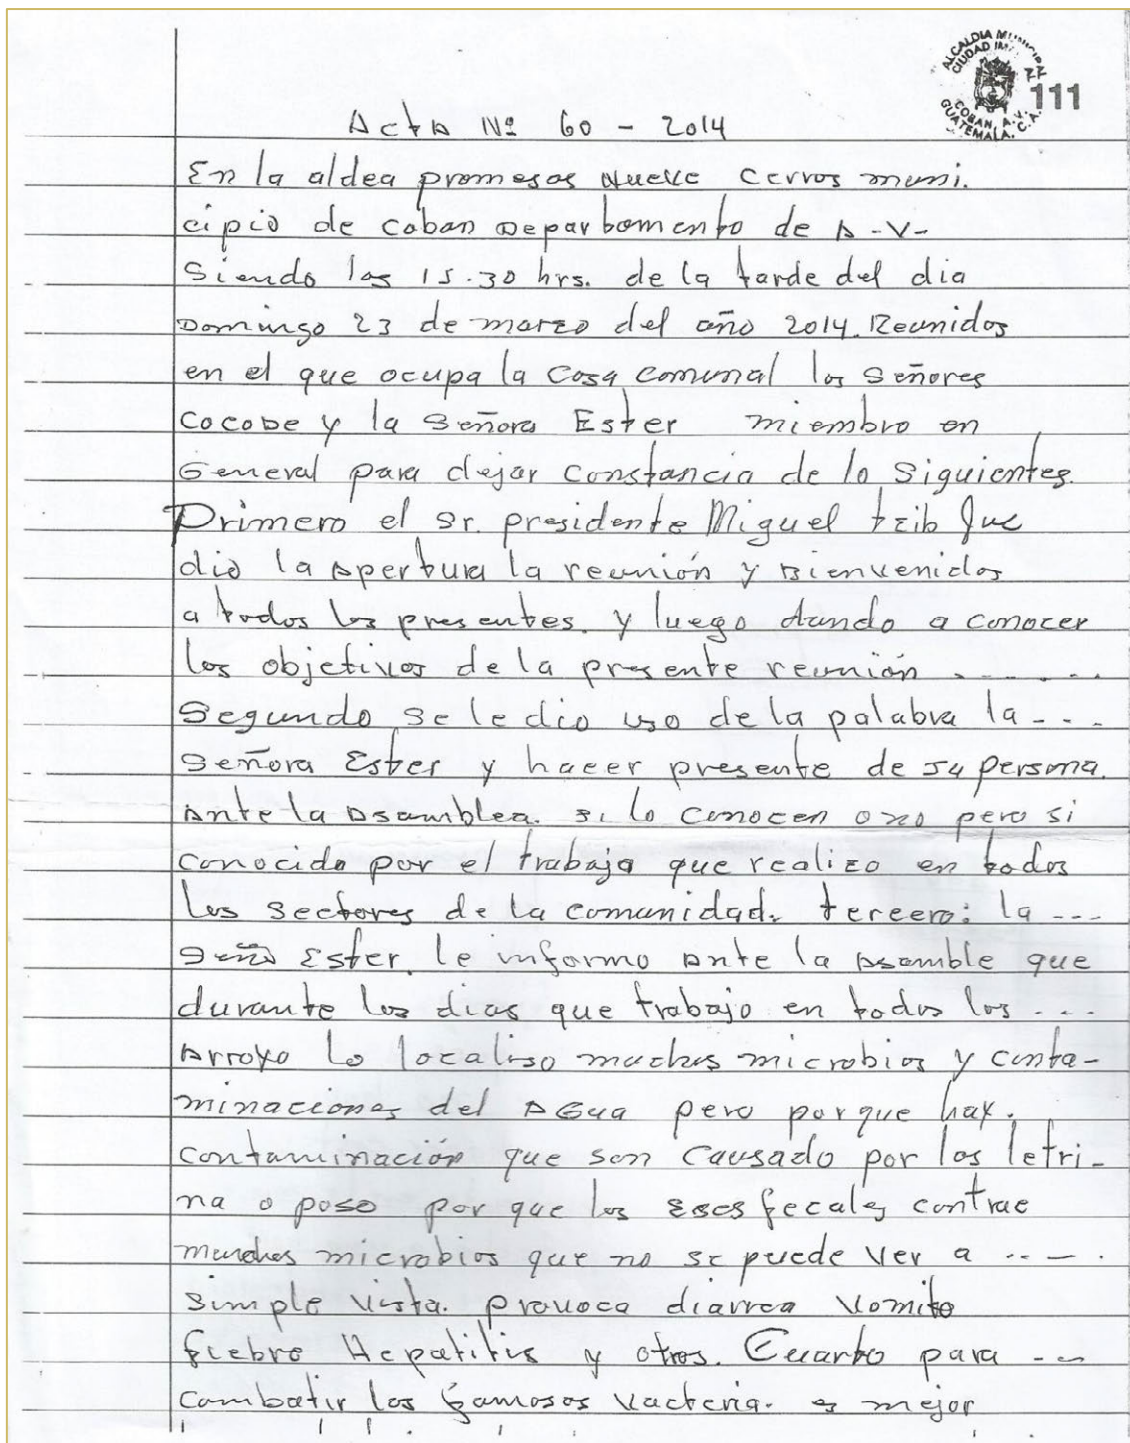 ALCALDIA MUNICIPAL
CIUDAD
COBAN, A.V.
GUATEMALA, C.A.
111
Acta Nº 60 - 2014
En la aldea promesas Nueve Cerros muni.
cipio de Coban Departamento de A-V-
Siendo las 15.30 hrs. de la tarde del dia
Domingo 23 de marzo del año 2014. Reunidos
en el que ocupa la Casa Comunal los Señores
Cocode y la Señora Ester miembro en
General para dejar Constancia de lo Siguientes.
Primero el Sr. presidente Miguel tzib
dio la Apertura la reunión y Bienvenidos
a todos los presentes. y luego dando a conocer
los objetivos de la presente reunión . - . - . .
Segundo se le dio uso de la palabra la - - .
Señora Ester y hacer presente de su persona.
Ante la Asamblea. si lo conocen o no pero si
conocido por el trabajo que realizo en todos
los Sectores de la comunidad. tercero: la ---
Seño Ester. le informo Ante la Asamble que
durante los dias que trabajo en todos los . . .
Arroyo lo localiso muchas microbios y conta-
minaciones del AGua pero porque hay.
contaminación que son Causado por las letri-
na o poso por que los Eses fecales contrae
muchos microbios que no se puede ver a .. - .
Simple vista. provoca diarrea vomito
fiebre Hepatitis y otros. Cuarto para - -
Combatir los famosos Vacteria. es mejor